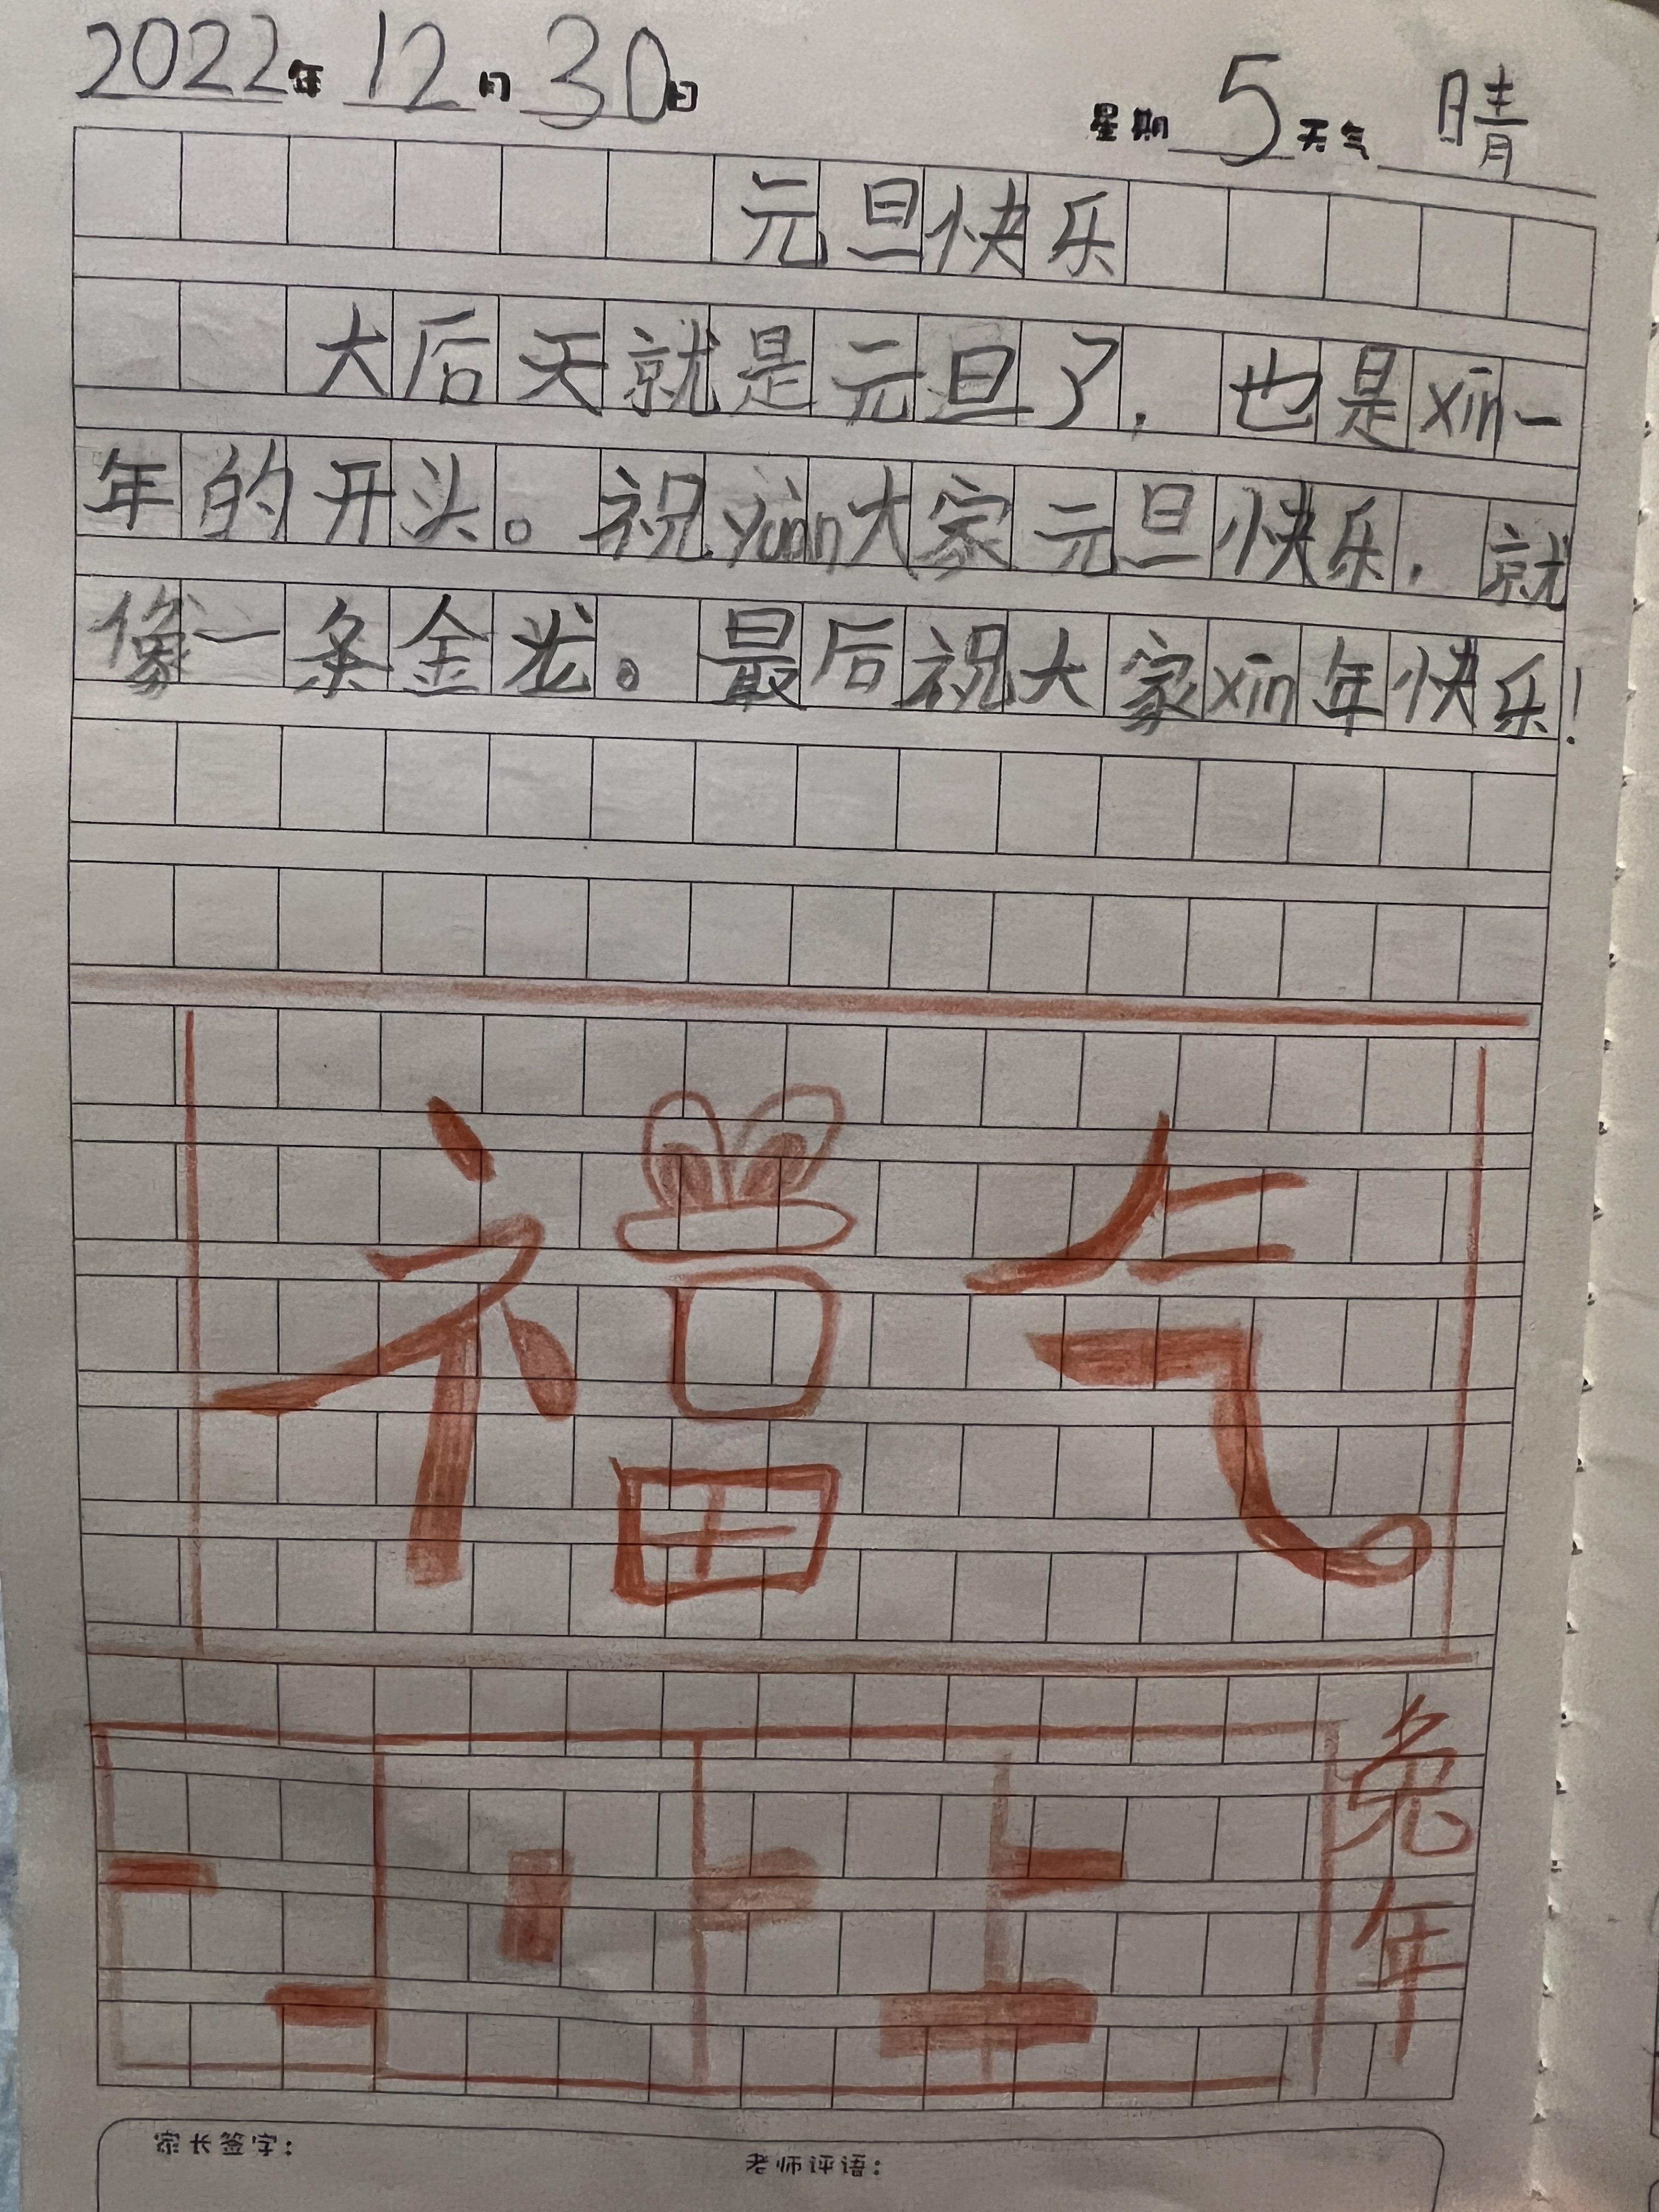 2022年12月30日 星期5天气晴
元旦快乐
大后天就是元旦了，也是xin一
年的开头。祝yuàn大家元旦快乐，就
像一条金龙。最后祝大家xin年快乐！
福气
兔年
家长签字： 老师评语：